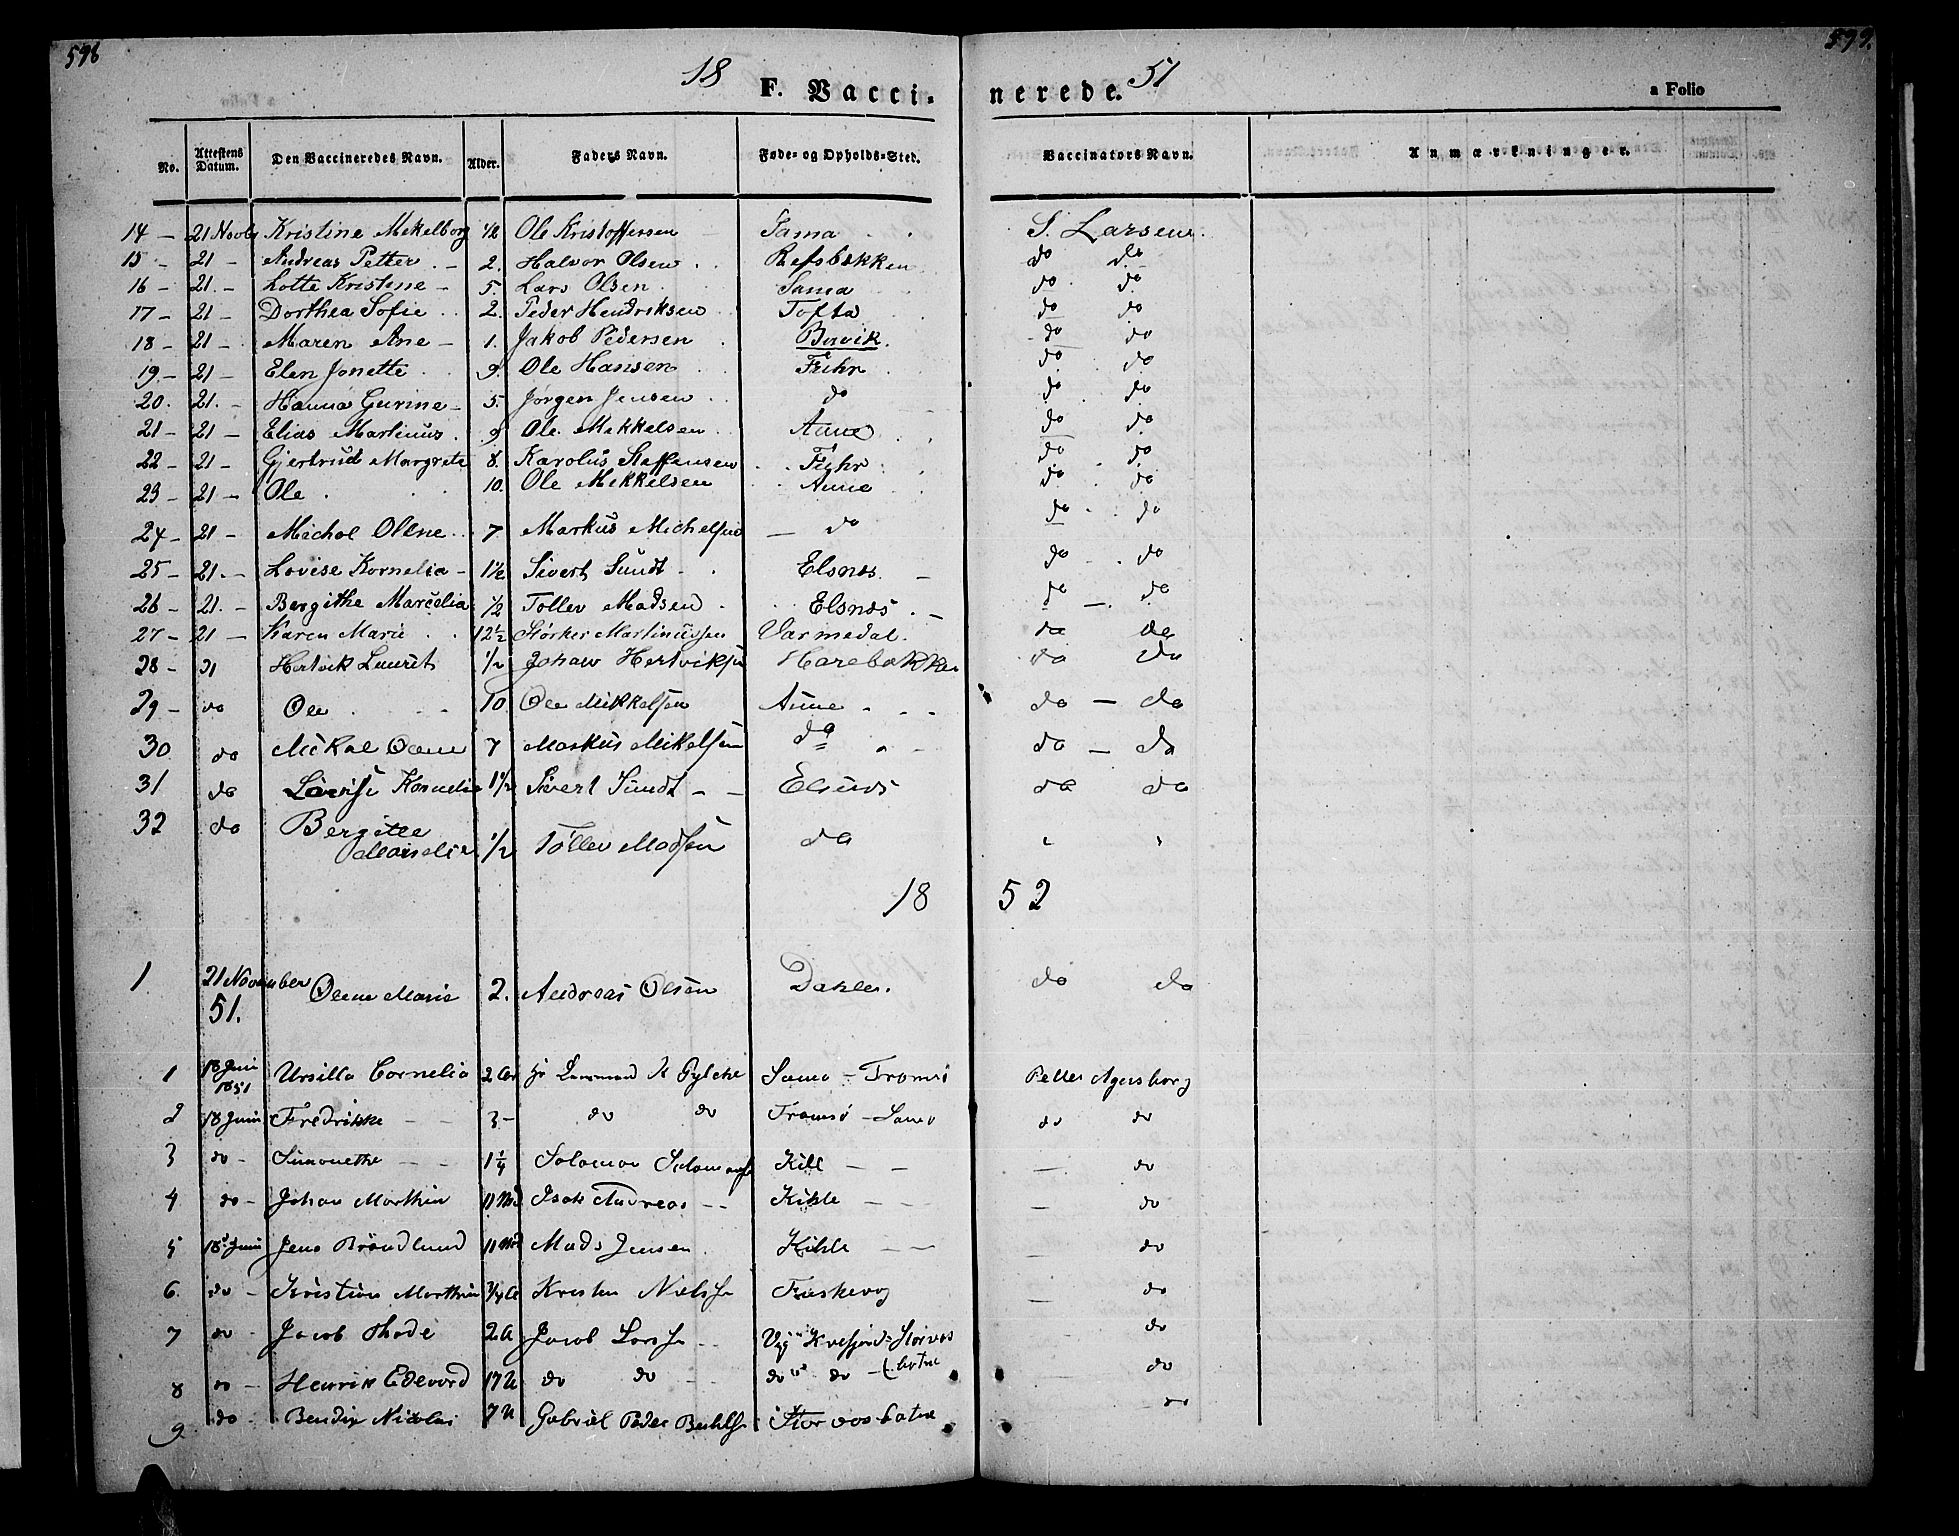 598
599.
18 F. Vacci- nerede. 51
a Folio
No. Attestens Datum. Den Vaccineredes Navn. Alder. Faders Navn. Føde- og Opholds-Sted. Vaccinators Navn. Anmærkninger.
14 - 21 Novbr Kristine Mekelborg 1/2 Ole Kristoffersen Sama S. Larsen
15 - 21 - Andreas Petter - 2. Halvor Olsen Refsbækken do do
16 - 21. - Lotte Kristine - 5. Lars Olsen Sama do do
17 - 21 - Dorthea Sofie 2. Peder Hendriksen Tofta do do
18 - 21 - Maren Ane - 1. Jakob Pedersen Burvik. do do
19. - 21 - Elen Jonette 9. Ole Hansen do do
20. 21. - Hanna Gurine - 5. Jørgen Jensen do do do
21 - 21 - Elias Martinus 9 Ole Mekkelsen Aune do do
22 - 21 - Gjertrud Margrete 8. Karolus Staffensen do do
23 - 21 - Ole 10. Ole Mekkelsen Aune do do
24 - 21 - Michal Olene 7 Markus Michelsen - do do do
25 - 21. - Lovise Kornelia - 1 1/2 Sivert Sundt - Elsnes - do do
26 - 21. - Bergithe Marcelia 1/2 Tollev Madsen Elsnes. - do - do
27 - 21 - Karen Marie 12 1/2 Størker Martinussen Varmedal. do do
28 - 21 Hertvik Laurits 1/2 Johan Hertviksen Harebakken do do
29 - do Ole 10 Ole Mikkelsen Aune do - do
30 do Mikal Oline 7 Markus Mikelsen do do - do
31 do Lovise Kornelia 1 1/2 Sivert Sundt - - Elsnes do do
32 do Bergitte
Marselie 1/2 Tøllev Madsen do
18 52
1 21 November
51. Olene Marie 2. Andreas Olsen Dahle. do do
1 18 Juni
1851 Ursilla Cornelia 2 Hr Lensmand Sama - Tromsø Petter Agersborg
2 18 Juni Fredrikke - - 3 - do do Tromsø - Sama do do
3 do - Simonethe - - 1 1/4 Solomon Kill - - - do
4 do - Johan Marthin 11 Md Isak Andreas - - Kihle - - - do
5 18 Juni Jens Brøndlund 11 Md Mads Jensen Kihle - - do
6. do - Kristian Marthin 3/4 A Kristen Nielsen - do
7 do - Jacob Thode 2 A Jacob Larssen - - Vig i Kvefjord - Storvas do
8 do - Henrik Edevard do do - do do - botne do
9 do - Bendix Nicolai Gabriel Peder Storvosbotne - do